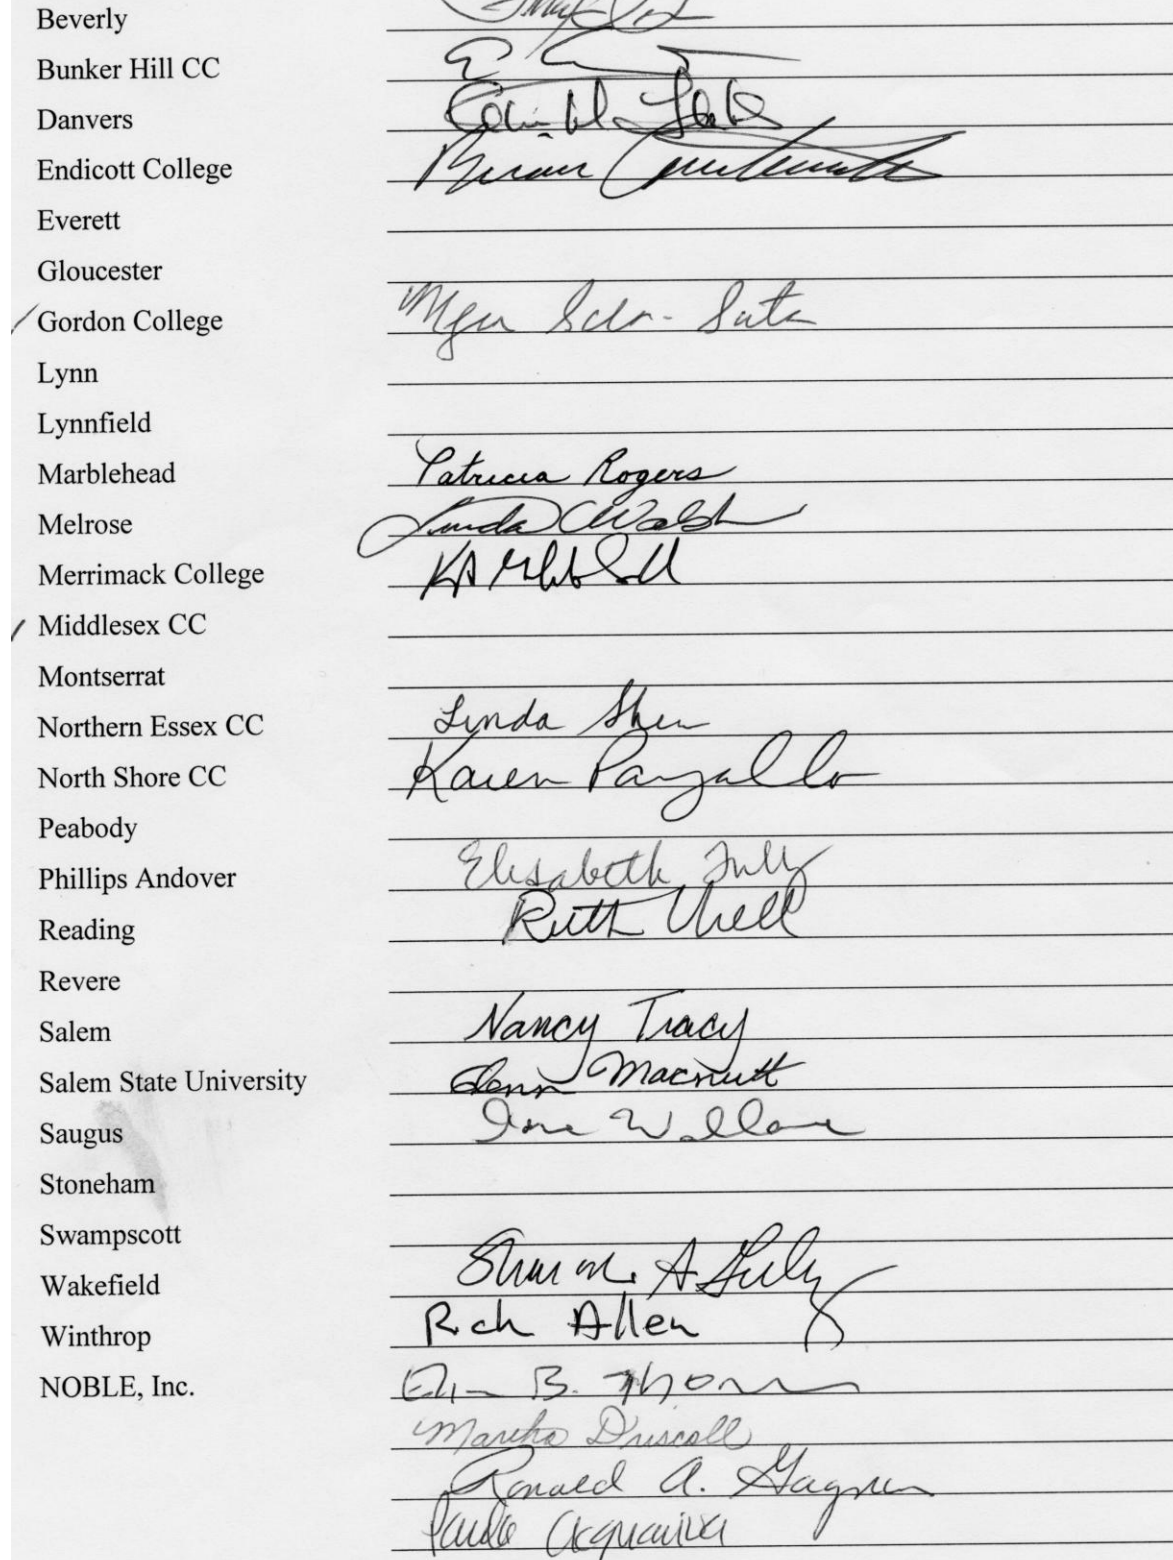 Beverly
Bunker Hill CC
Danvers
Endicott College Brian
Everett
Gloucester
Gordon College
Lynn
Lynnfield
Marblehead Patricia Rogers
Melrose Linda C Walsh
Merrimack College
Middlesex CC
Montserrat
Northern Essex CC Linda Shea
North Shore CC Karen Pangallo
Peabody
Phillips Andover Elisabeth Tully
Reading Ruth Urell
Revere
Salem Nancy Tracy
Salem State University Glenn Macnutt
Saugus Wallace
Stoneham
Swampscott
Wakefield Sharon A
Winthrop Rich Allen
NOBLE, Inc. B. Thomas
Martha Driscoll
Ronald A. Gagnon
Acquaviva